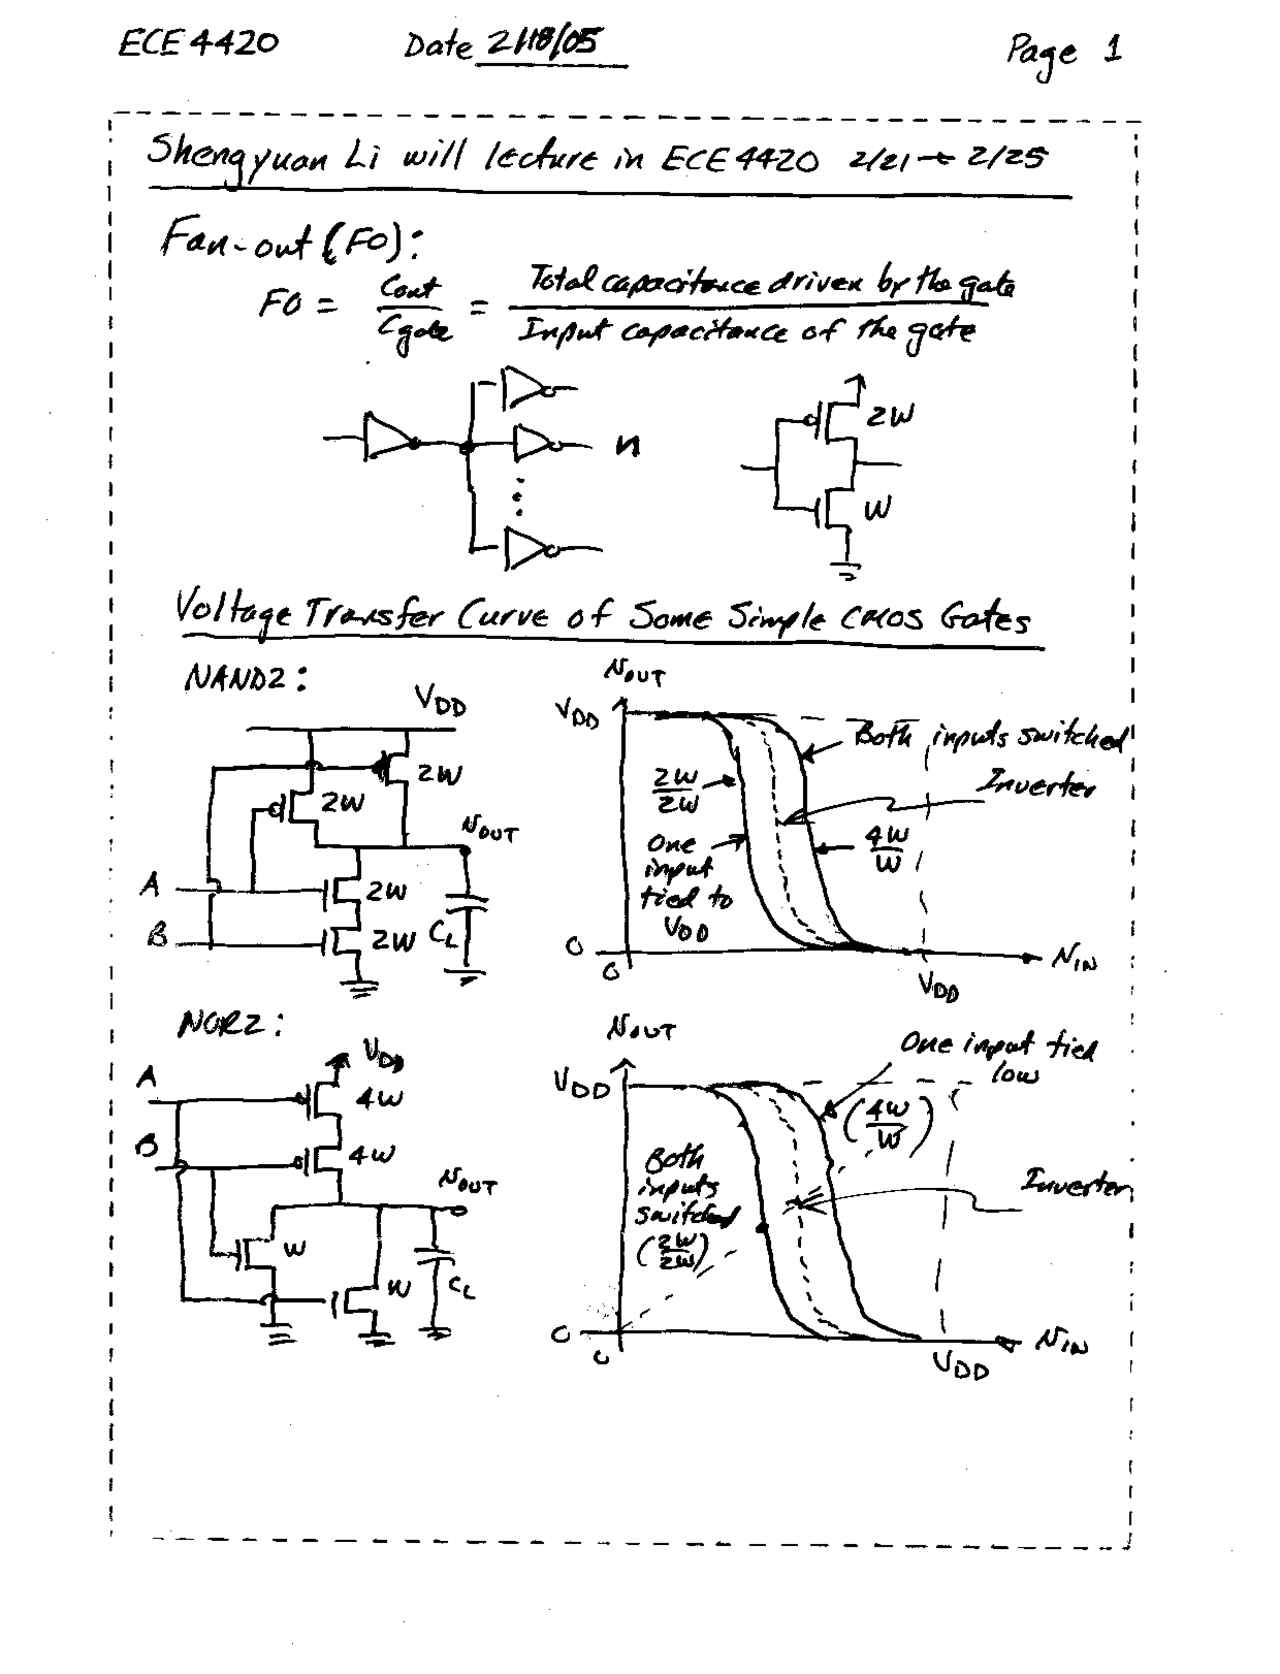 ECE 4420 Date 2/18/05 Page 1
Shengyuan Li will lecture in ECE 4420 2/21 → 2/25
Fan-out (FO):
FO = Cout / Cgate = Total capacitance driven by the gate / Input capacitance of the gate
n
2W
W
Voltage Transfer Curve of Some Simple CMOS Gates
NAND2:
VDD
2W
2W
vOUT
A
2W
B
2W
CL
vOUT
VDD
Both inputs switched
2W/2W
Inverter
One
input
tied to
VDD
4W/W
0
0
VDD
vIN
NOR2:
VDD
A
4W
B
4W
vOUT
W
W
CL
vOUT
One input tied
low
VDD
(4W/W)
Both
inputs
switched
(2W/2W)
Inverter
0
0
VDD
vIN